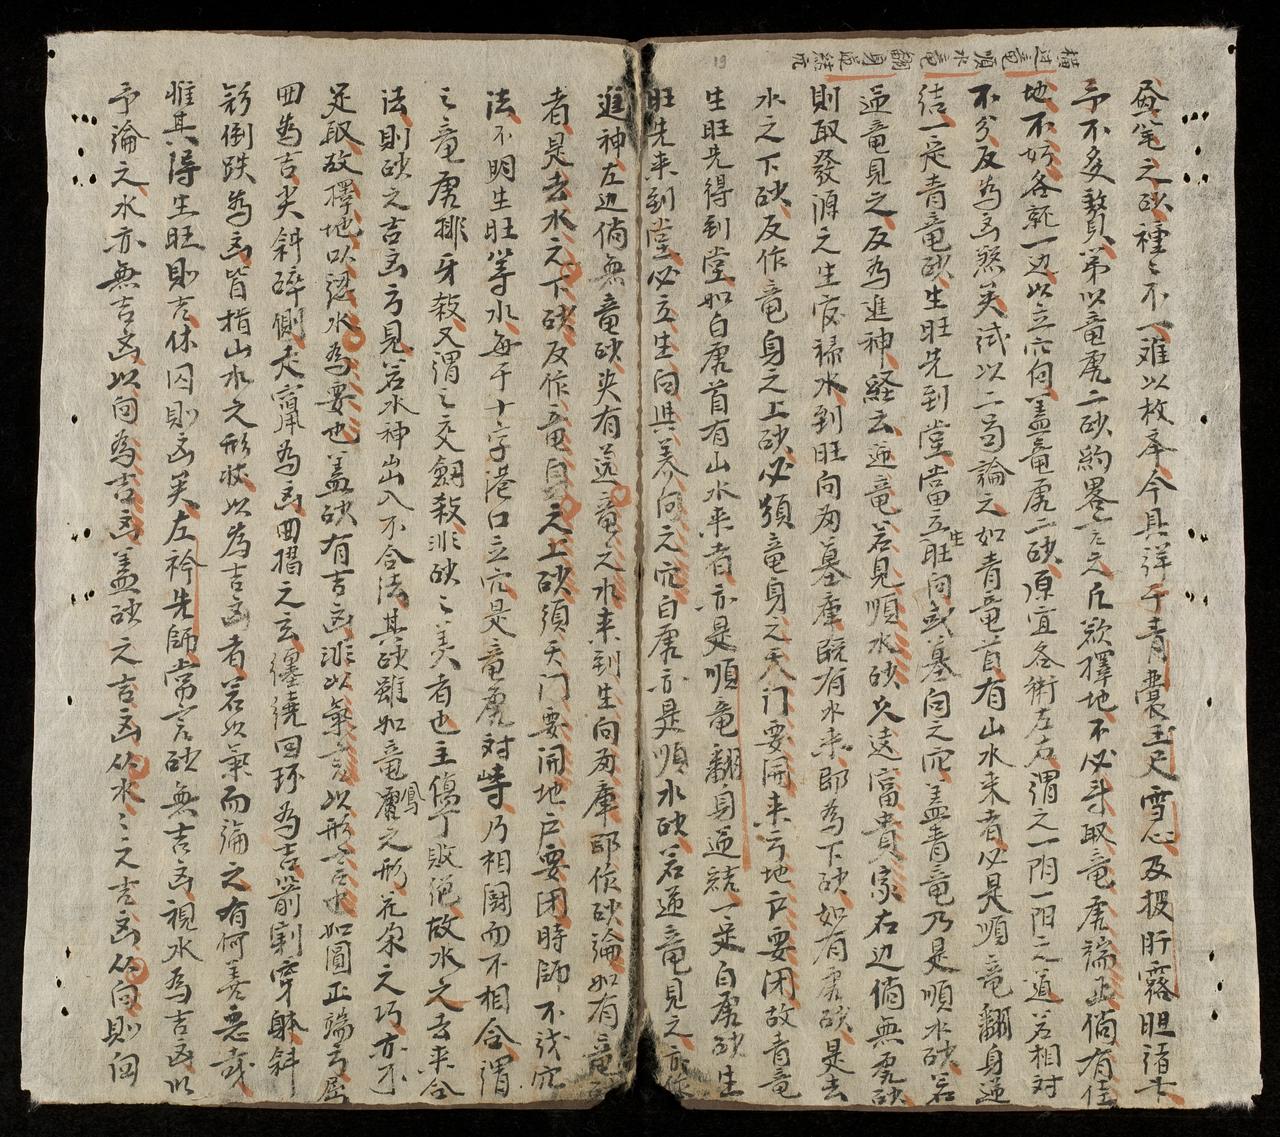 砂種々不一难以枚举今具详于青囊玉尺雪心及披肝露胆诸
予不多贅第以竜虎二砂約畧言之凡欲擇地不必采取竜虎端正倘有
地不好各執一边以立穴向盖竜虎二砂原宜各衛左右謂之一阴一阳之道若相对
不分反為凶煞矣试以二句論之如青竜首有山水来者必是順竜翻身逆
结一定青竜砂生旺先到堂當立生旺向或墓向之穴盖青竜乃是順水砂若
逆竜見之反為進神経云逆竜若見順水砂久远富貴家右边倘無虎砂
則取發源之生官禄水到旺向为墓庫既有水来即為下砂如有虎砂是去
水之下砂反作竜身之上砂必須竜身之天门要開来亏地户要闭故青竜
生旺先得到堂如白虎首有山水来者亦是順竜翻身逆结一定白虎砂生
旺先来到堂必立生向與养向之穴白虎亦是順水砂若逆竜見之亦作
進神左边倘無竜砂只有逆竜之水来到生向为庫即作砂論如有竜
者是去水之下砂反作竜身之上砂須天门要開地户要闭時師不识穴
法不明生旺等水每于十字港口立穴是竜虎対峙乃相闘而不相合謂
之竜虎排牙殺又謂之交劔殺非砂之美者也主傷丁敗绝故水之去来合
法則砂之吉凶方見若水神出入不合法其砂雖如竜鳳之形花朵之巧亦不
足取故擇地以認水為要也盖砂有吉凶非以氣言以形言也如圓正端方
曲為吉尖斜碎側走竄為凶曲摺之玄纏繞回环為吉箭割穿射斜
倒跌為凶皆指山水之形状以為吉凶者若以氣而論之有何善惡哉
惟其得生旺則吉休囚則凶矣左衿先師常言砂無吉凶視水為吉凶以
予論之水亦無吉凶以向為吉凶盖砂之吉凶從水之之吉凶從向則向
順水竜
翻身逆结穴
19